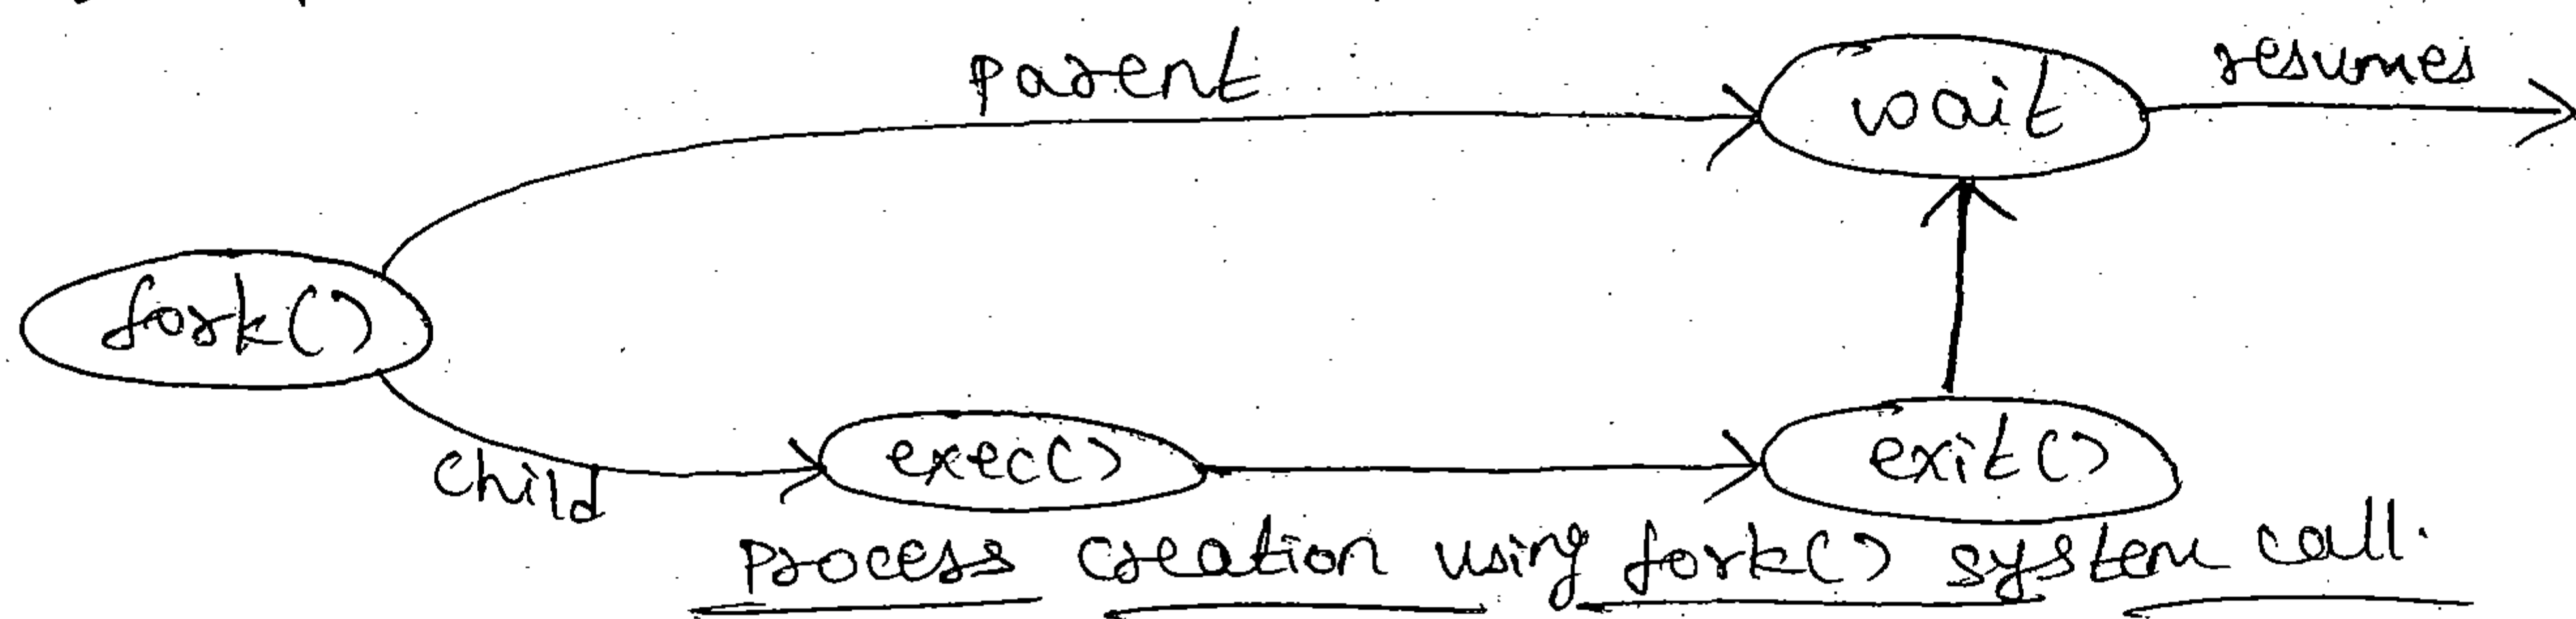 parent
wait
resumes
fork()
child
exec()
exit()
process creation using fork() system call.